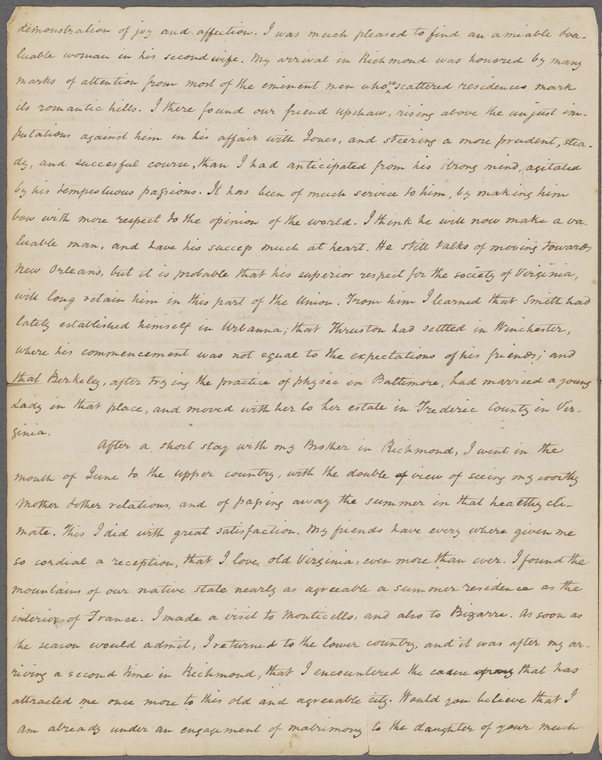 demonstration of joy and affection. I was much pleased to find an amiable & va-
luable woman in his second wife. My arrival in Richmond was honored by many
marks of attention from most of the eminent men whose scattered residences mark
its romantic hills. I there found our friend Upshaw, rising above the unjust im-
putations against him in his affair with Jones, and steering a more prudent, stea-
dy, and succesful course, than I had anticipated from his strong mind, agitated
by his tempestuous passions. It has been of much service to him, by making him
bow with more respect to the opinion of the world. I think he will now make a va-
luable man, and have his success much at heart. He still talks of moving towards
New Orleans, but it is probable that his superior respect for the society of Virginia,
will long retain him in this part of the Union. From him I learned that Smith had
lately established himself in Urbanna; that Thruston had settled in Winchester,
where his commencement was not equal to the expectations of his friends; and
that Berkeley, after trying the practice of physic in Baltimore, had married a young
Lady in that place, and moved with her to her estate in Frederic County in Vir-
ginia.
After a short stay with my Brother in Richmond, I went in the
month of June to the upper country, with the double view of seeing my worthy
Mother & other relations, and of passing away the summer in that healthy cli-
mate. This I did with great satisfaction. My friends have every where given me
so cordial a reception, that I love old Virginia even more than ever. I found the
mountains of our native state nearly as agreeable a summer residence as the
interior of France. I made a visit to Monticello, and also to Bizarre. As soon as
the season would admit, I returned to the lower country, and it was after my ar-
riving a second time in Richmond, that I encountered the cause that has
attracted me once more to this old and agreeable city. Would you believe that I
am already under an engagement of matrimony to the daughter of your much